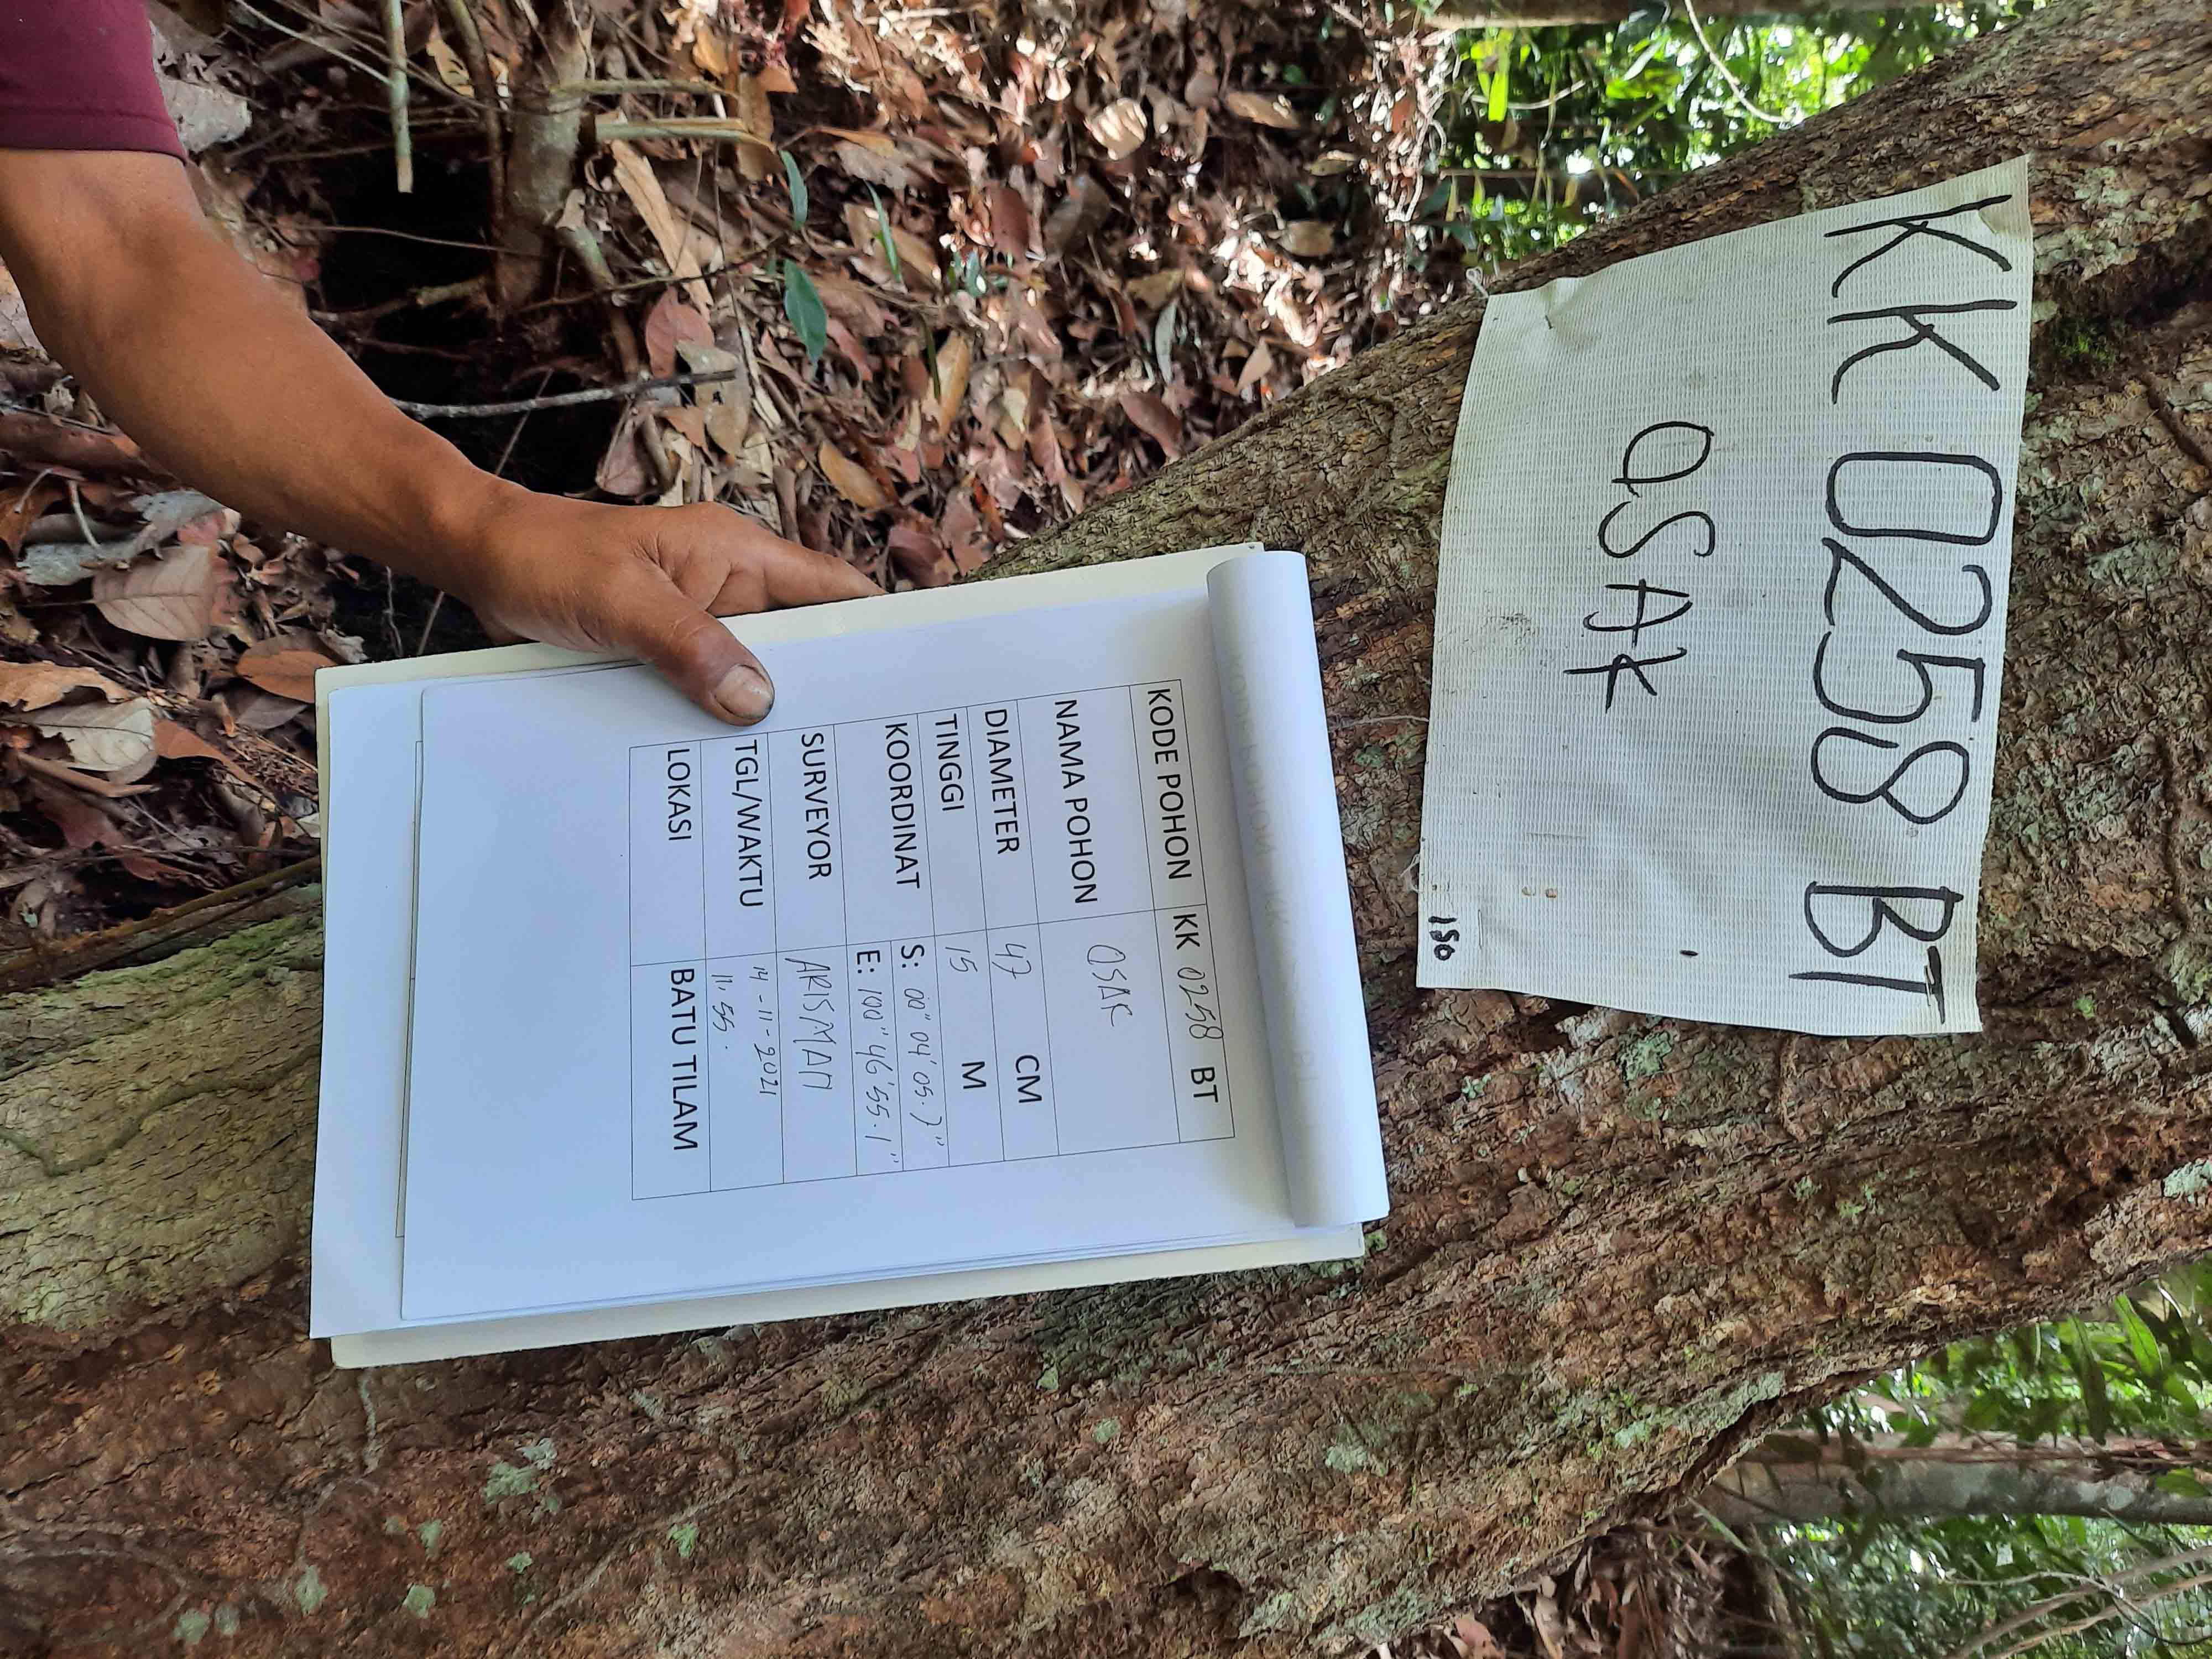 KK 0258 BT
OSAK
150
KODE POHON KK 0258 BT
NAMA POHON OSAK
DIAMETER 47 CM
TINGGI 15 M
KOORDINAT S: 00" 04' 05.7"
E: 100" 46' 55.1"
SURVEYOR ARISMAN
TGL/WAKTU 14-11-2021
11.55.
LOKASI BATU TILAM